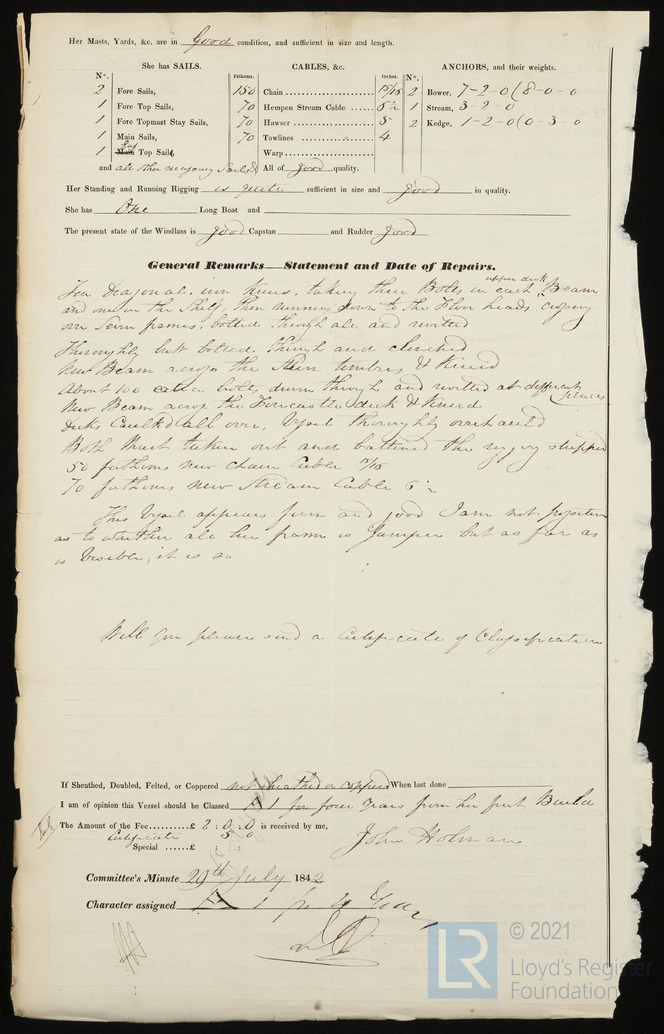 Her Masts, Yards, &c. are in Good condition, and sufficient in size and length.
She has SAILS. CABLES, &c. ANCHORS, and their weights.
No. Fathoms. Inches. No.
2 Fore Sails, 150 Chain 15/16 2 Bower, 7-2-0 (8-0-0
1 Fore Top Sails, 70 Hempen Stream Cable 6½ 1 Stream, 3 2 0
1 Fore Topmast Stay Sails, 70 Hawser 5 2 Kedge, 1-2-0 (0-3-0
1 Main Sails, 70 Towlines 4
1 Main Top Sails, Warp
and all other necessary Sails All of good quality.
Her Standing and Running Rigging is quite sufficient in size and good in quality.
She has One Long Boat and
The present state of the Windlass is good Capstan and Rudder good
General Remarks—Statement and Date of Repairs.
upper deck
Ten Diagonal iron Knees, taking three Bolts in each Beam
and one in the Shelf, then running down to the Floor heads crossing
over Seven frames, bolted through all and rivited
Thoroughly butt bolted through and clenched
New Beam across the Stern timbers & Kneed
About 100 extra bolts driven through and rivited at different places
New Beam across the Forecastle deck & Kneed
Decks Caulked all over, Vessel thoroughly overhauld
Both Mast taken out and the rigging stripped
50 fathoms new chain Cable 15/16
70 fathoms new Stream Cable 6½
This Vessel appears firm and good I am not positive
as to whether all her frame is Juniper but as far as
is Visible, it is so
Will you please send a Certificate of Classification
If Sheathed, Doubled, Felted, or Coppered not sheathed or coppered When last done
I am of opinion this Vessel should be Classed A 1 for four Years from her first Build
The Amount of the Fee £ 2 : 0 : 0 is received by me,
Certificate 5 0
Special £ : :
John Holman
Committee's Minute 29th July 1842
Character assigned A 1 for 4 Years
© 2021
LR Lloyd's Register
Foundation